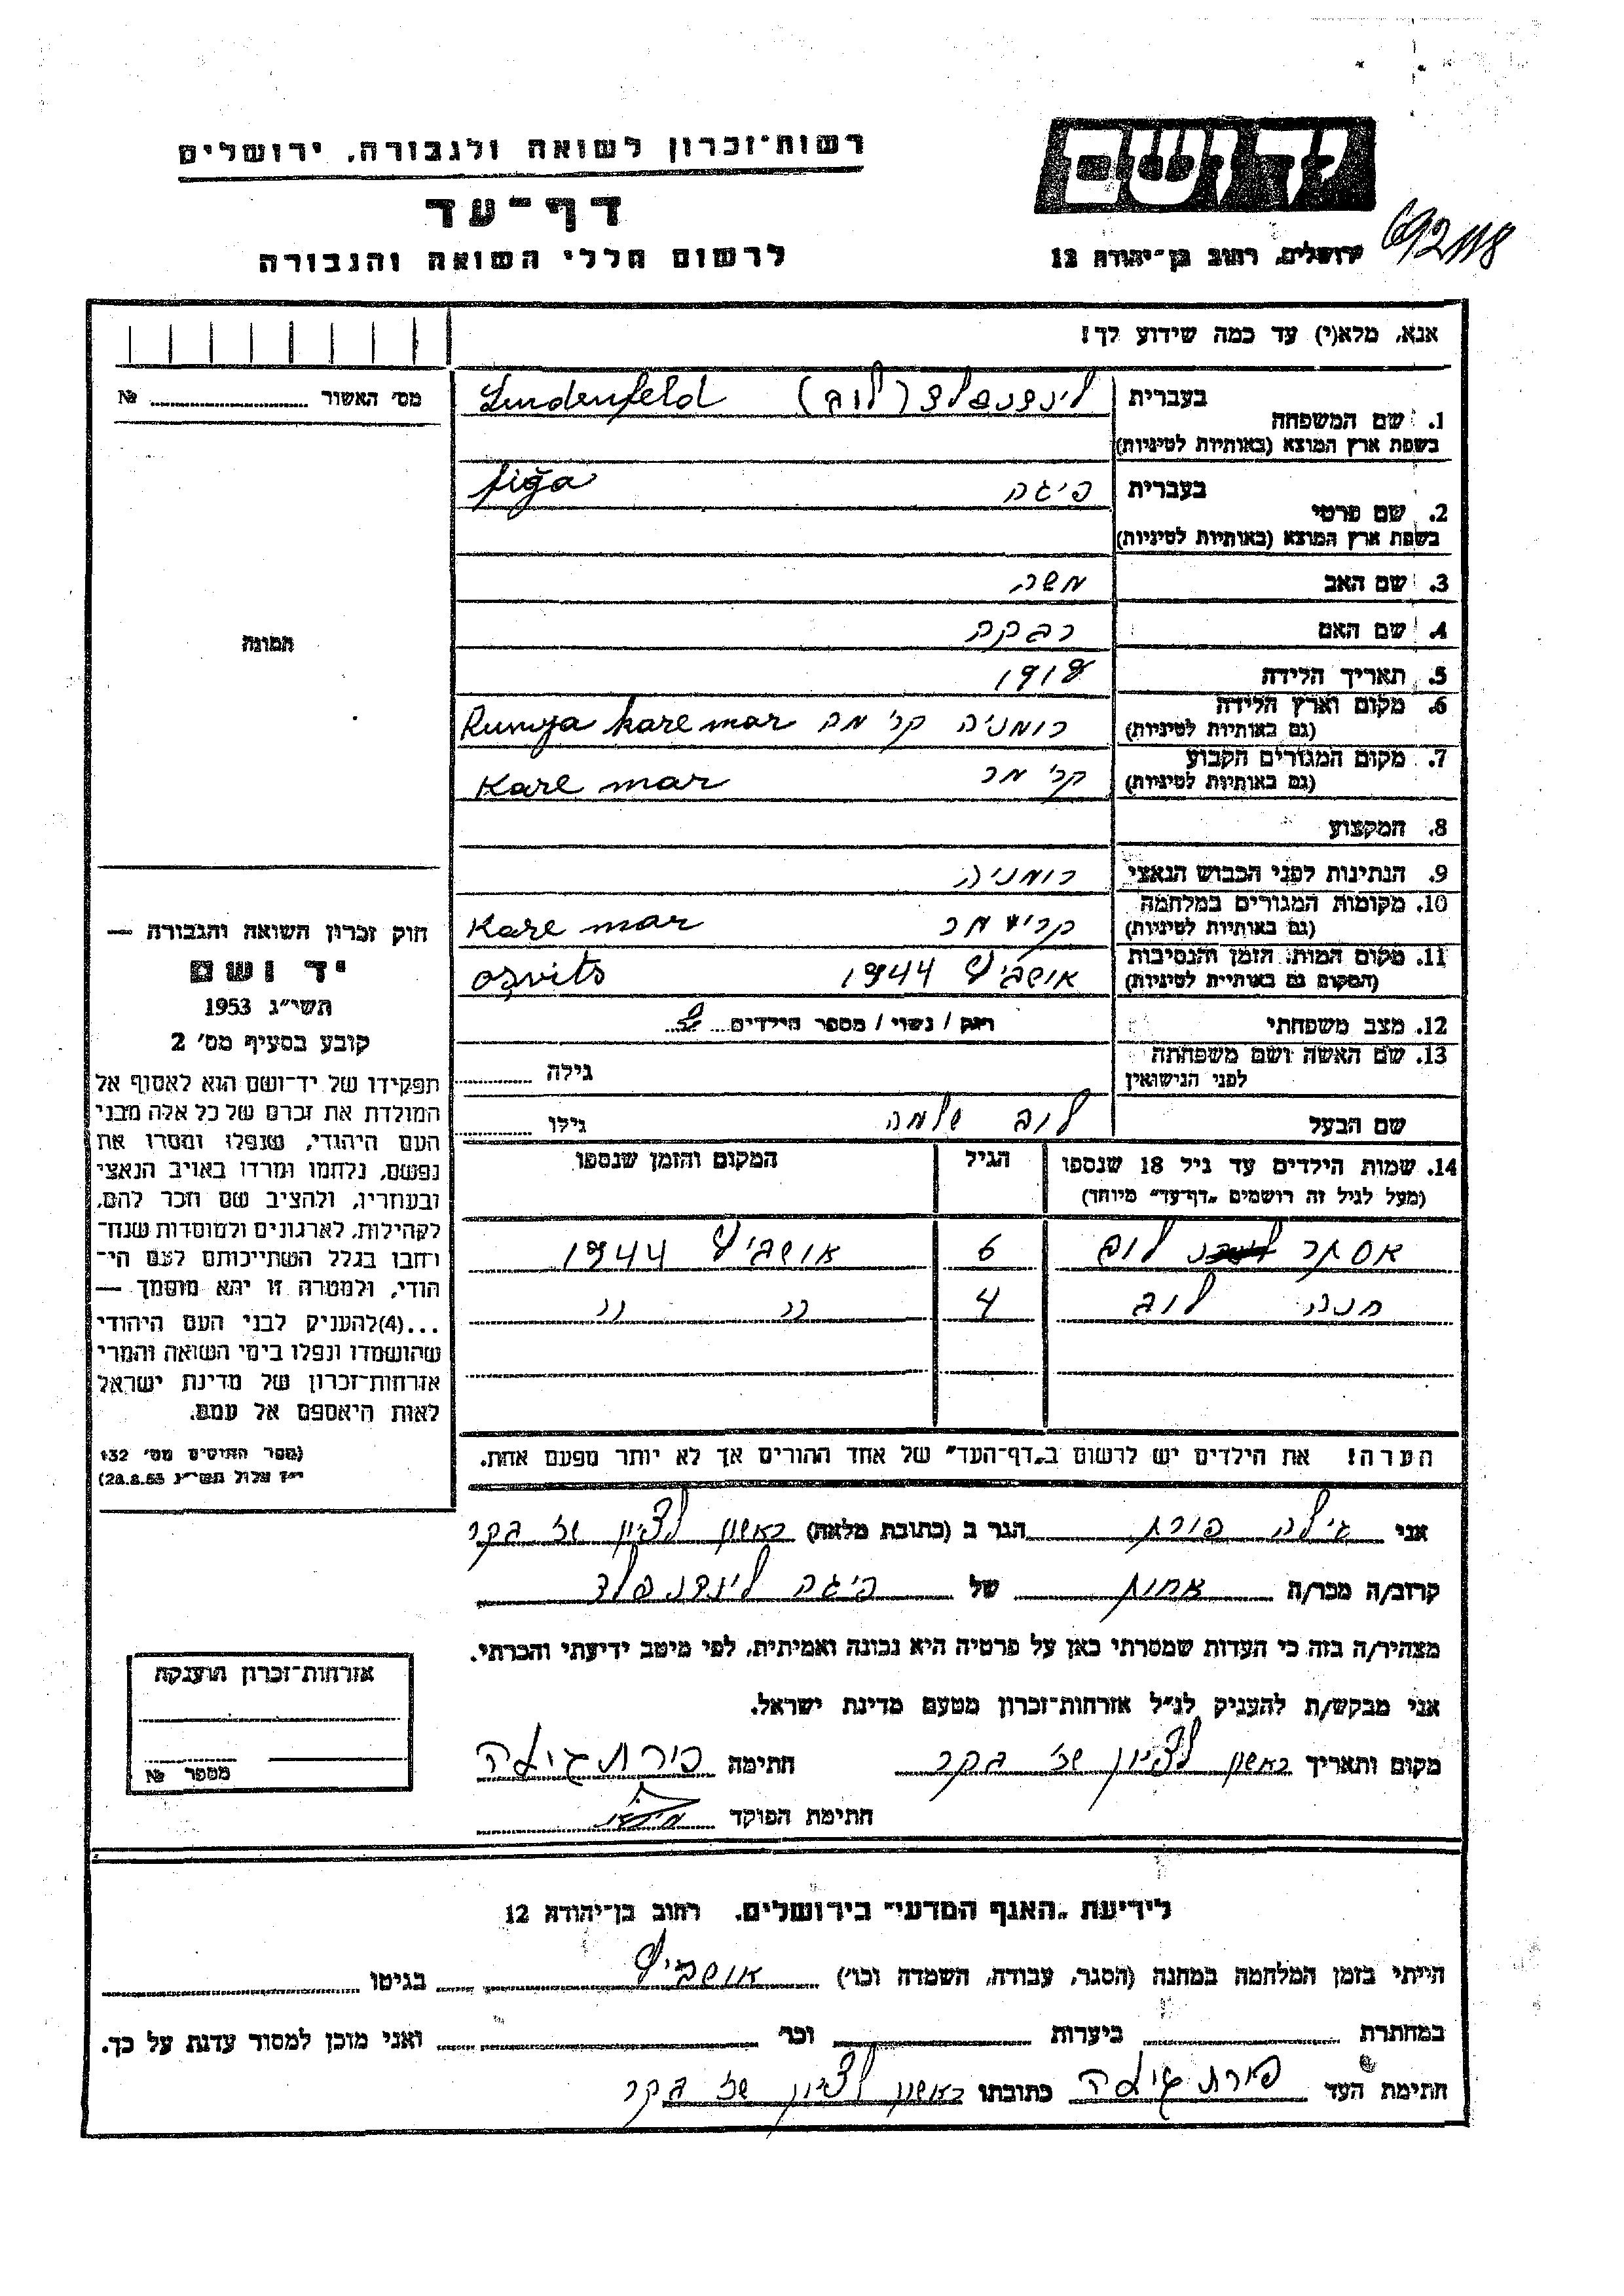 רשות־זכרון לשואה ולגבורה, ירושלים
דף־עד
לרשום חללי השואה והגבורה
יד ושם
ירושלים, רחוב בן־יהודה 12
692118
אנא, מלא(י) עד כמה שידוע לך!
מס' האשור № 
1. שם המשפחה
בעברית לינדנפלד (לוב) Lindenfeld
בשפת ארץ המוצא (באותיות לטיניות)
2. שם פרטי
בעברית פיגה figa
בשפת ארץ המוצא (באותיות לטיניות)
3. שם האב משה
4. שם האם רבקה
5. תאריך הלידה 1918
6. מקום וארץ הלידה רומניה קרי מר Rumya kare mar
(גם באותיות לטיניות)
7. מקום המגורים הקבוע קרי מר Kare mar
(גם באותיות לטיניות)
8. המקצוע
9. הנתינות לפני הכבוש הנאצי רומניה
10. מקומות המגורים במלחמה מר Kare mar
(גם באותיות לטיניות)
11. מקום המות, הזמן והנסיבות אושביץ 1944 osvits
(המקום גם באותיות לטיניות)
12. מצב משפחתי רווק / נשוי / מספר הילדים
13. שם האשה ושם משפחתה
לפני הנישואין גילה
שם הבעל לוב שלמה גילו
14. שמות הילדים עד גיל 18 שנספו הגיל המקום והזמן שנספו
(מעל לגיל זה רושמים "דף־עד" מיוחד)
אסתר לוב 6 אושביץ 1944
חנה לוב 4 " "
הערה! את הילדים יש לרשום ב"דף־העד" של אחד ההורים אך לא יותר מפעם אחת.
התמונה
חוק זכרון השואה והגבורה —
יד ושם
תשי"ג 1953
קובע בסעיף מס' 2
תפקידו של יד־ושם הוא לאסוף אל
המולדת את זכרם של כל אלה מבני
העם היהודי, שנפלו ומסרו את
נפשם, נלחמו ומרדו באויב הנאצי
ובעוזריו, ולהציב שם וזכר להם,
לקהילות, לארגונים ולמוסדות שנח־
רחבו בגלל השתייכותם לעם הי־
הודי, ולמטרה זו יהא מוסמך —
...(4)להעניק לבני העם היהודי
שהושמדו ונפלו בימי השואה והמרי
אזרחות־זכרון של מדינת ישראל
לאות היאספם אל עמם.
(ספר החוקים מס' 132
י"ז אלול תשי"ג 28.8.53)
אני גילה פורת הגר ב (כתובת מלאה) ראשון לציון
קרוב/ה מכר/ה אחות של פיגה לינדנפלד
מצהיר/ה בזה כי העדות שמסרתי כאן על פרטיה היא נכונה ואמיתית, לפי מיטב ידיעתי והכרתי.
אני מבקש/ת להעניק לנ"ל אזרחות־זכרון מטעם מדינת ישראל.
מקום ותאריך ראשון לציון חתימה פורת גילה
חתימת הפוקד
אזרחות־זכרון הוענקה
מספר №
לידיעת "האגף המדעי" בירושלים, רחוב בן־יהודה 12
הייתי בזמן המלחמה במחנה (הסגר, עבודה, השמדה וכו') אושביץ בגיטו
במחתרת ביערות וכו' ואני מוכן למסור עדות על כך.
חתימת העד פורת גילה כתובתו ראשון לציון